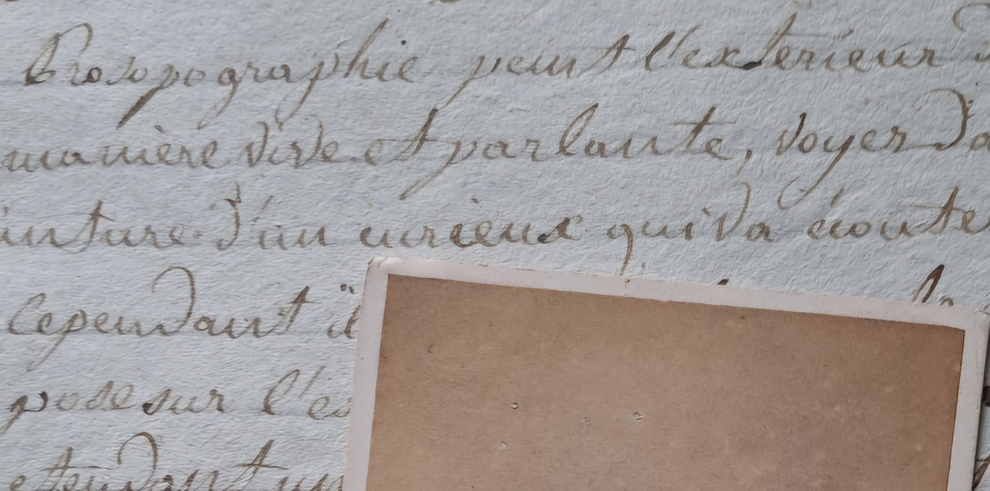 Prosopographie peint l'exterieur
manière vive et parlante, voyez
d'un curieux qui va écoute
cependant
pose sur
etendant un